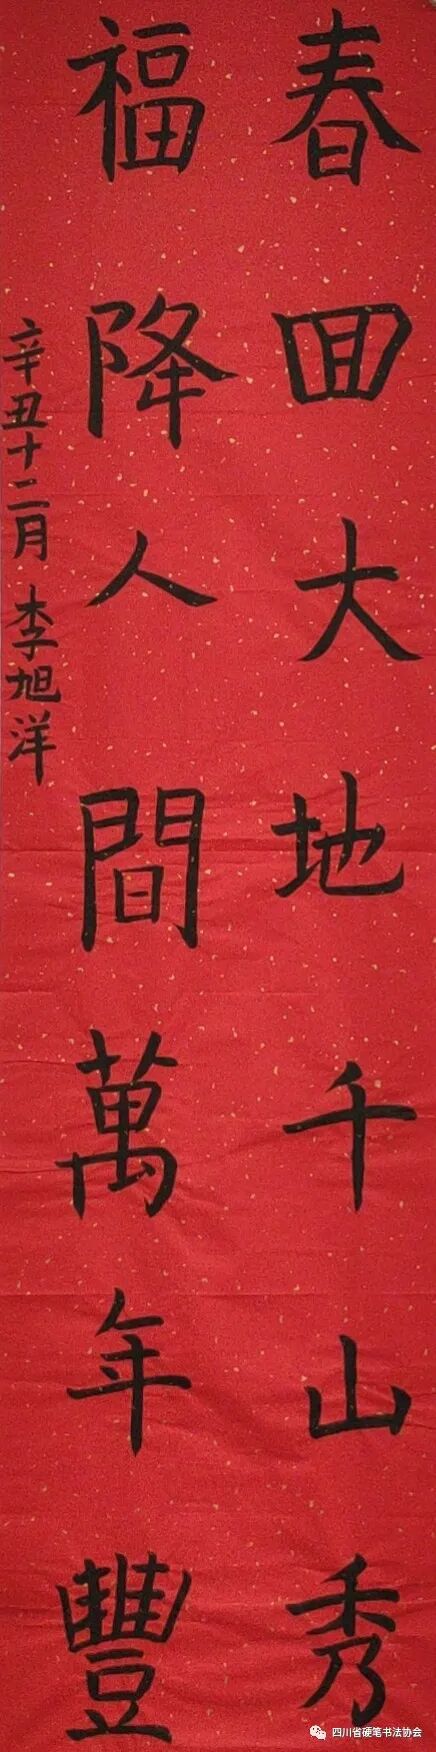 春回大地千山秀
福降人間萬年豐
辛丑十二月 李旭洋
四川省硬笔书法协会